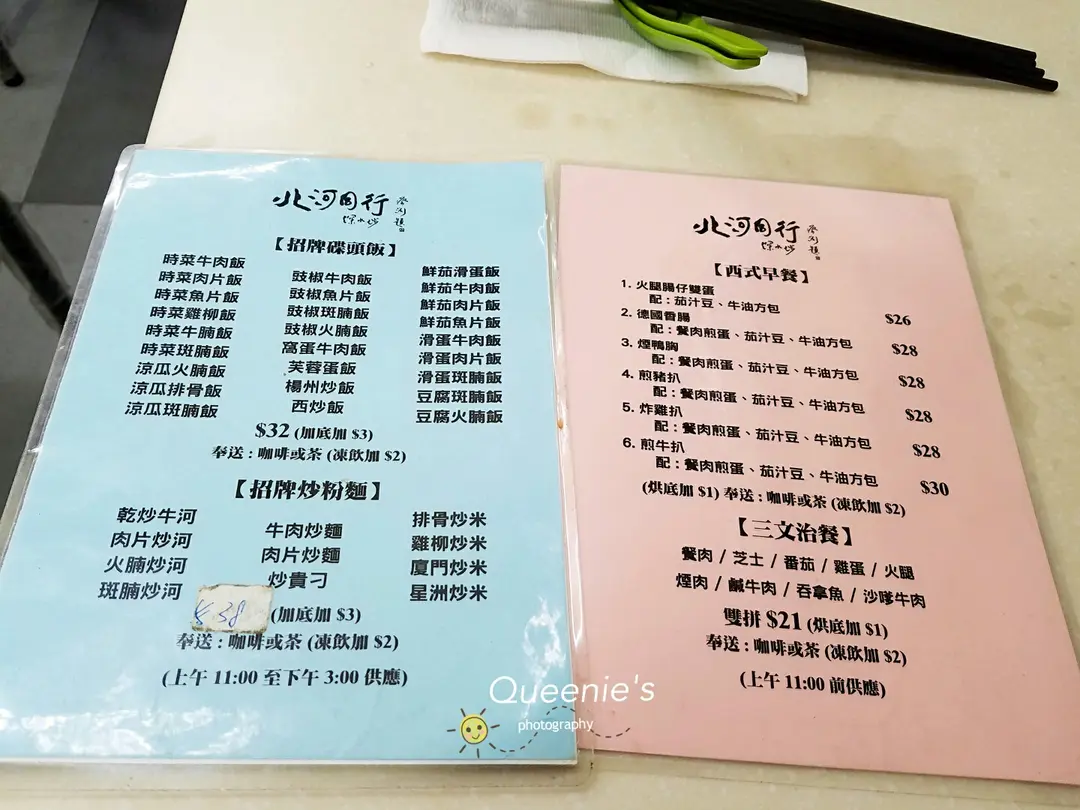 北河同行
深水埗
【招牌碟頭飯】
時菜牛肉飯
時菜肉片飯
時菜魚片飯
時菜雞柳飯
時菜牛腩飯
時菜斑腩飯
涼瓜火腩飯
涼瓜排骨飯
涼瓜斑腩飯
豉椒牛肉飯
豉椒魚片飯
豉椒斑腩飯
豉椒火腩飯
窩蛋牛肉飯
芙蓉蛋飯
楊州炒飯
西炒飯
鮮茄滑蛋飯
鮮茄牛肉飯
鮮茄肉片飯
鮮茄魚片飯
滑蛋牛肉飯
滑蛋肉片飯
滑蛋斑腩飯
豆腐斑腩飯
豆腐火腩飯
$32 (加底加 $3)
奉送：咖啡或茶 (凍飲加 $2)
【招牌炒粉麵】
乾炒牛河
肉片炒河
火腩炒河
斑腩炒河
牛肉炒麵
肉片炒麵
炒貴刁
排骨炒米
雞柳炒米
廈門炒米
星洲炒米
$38 (加底加 $3)
奉送：咖啡或茶 (凍飲加 $2)
(上午 11:00 至下午 3:00 供應)
北河同行
深水埗
【西式早餐】
1. 火腿腸仔雙蛋
配：茄汁豆、牛油方包 $26
2. 德國香腸
配：餐肉煎蛋、茄汁豆、牛油方包 $28
3. 煙鴨胸
配：餐肉煎蛋、茄汁豆、牛油方包 $28
4. 煎豬扒
配：餐肉煎蛋、茄汁豆、牛油方包 $28
5. 炸雞扒
配：餐肉煎蛋、茄汁豆、牛油方包 $28
6. 煎牛扒
配：餐肉煎蛋、茄汁豆、牛油方包 $30
(烘底加 $1) 奉送：咖啡或茶 (凍飲加 $2)
【三文治餐】
餐肉 / 芝士 / 番茄 / 雞蛋 / 火腿
煙肉 / 鹹牛肉 / 吞拿魚 / 沙嗲牛肉
雙拼 $21 (烘底加 $1)
奉送：咖啡或茶 (凍飲加 $2)
(上午 11:00 前供應)
Queenie's
photography